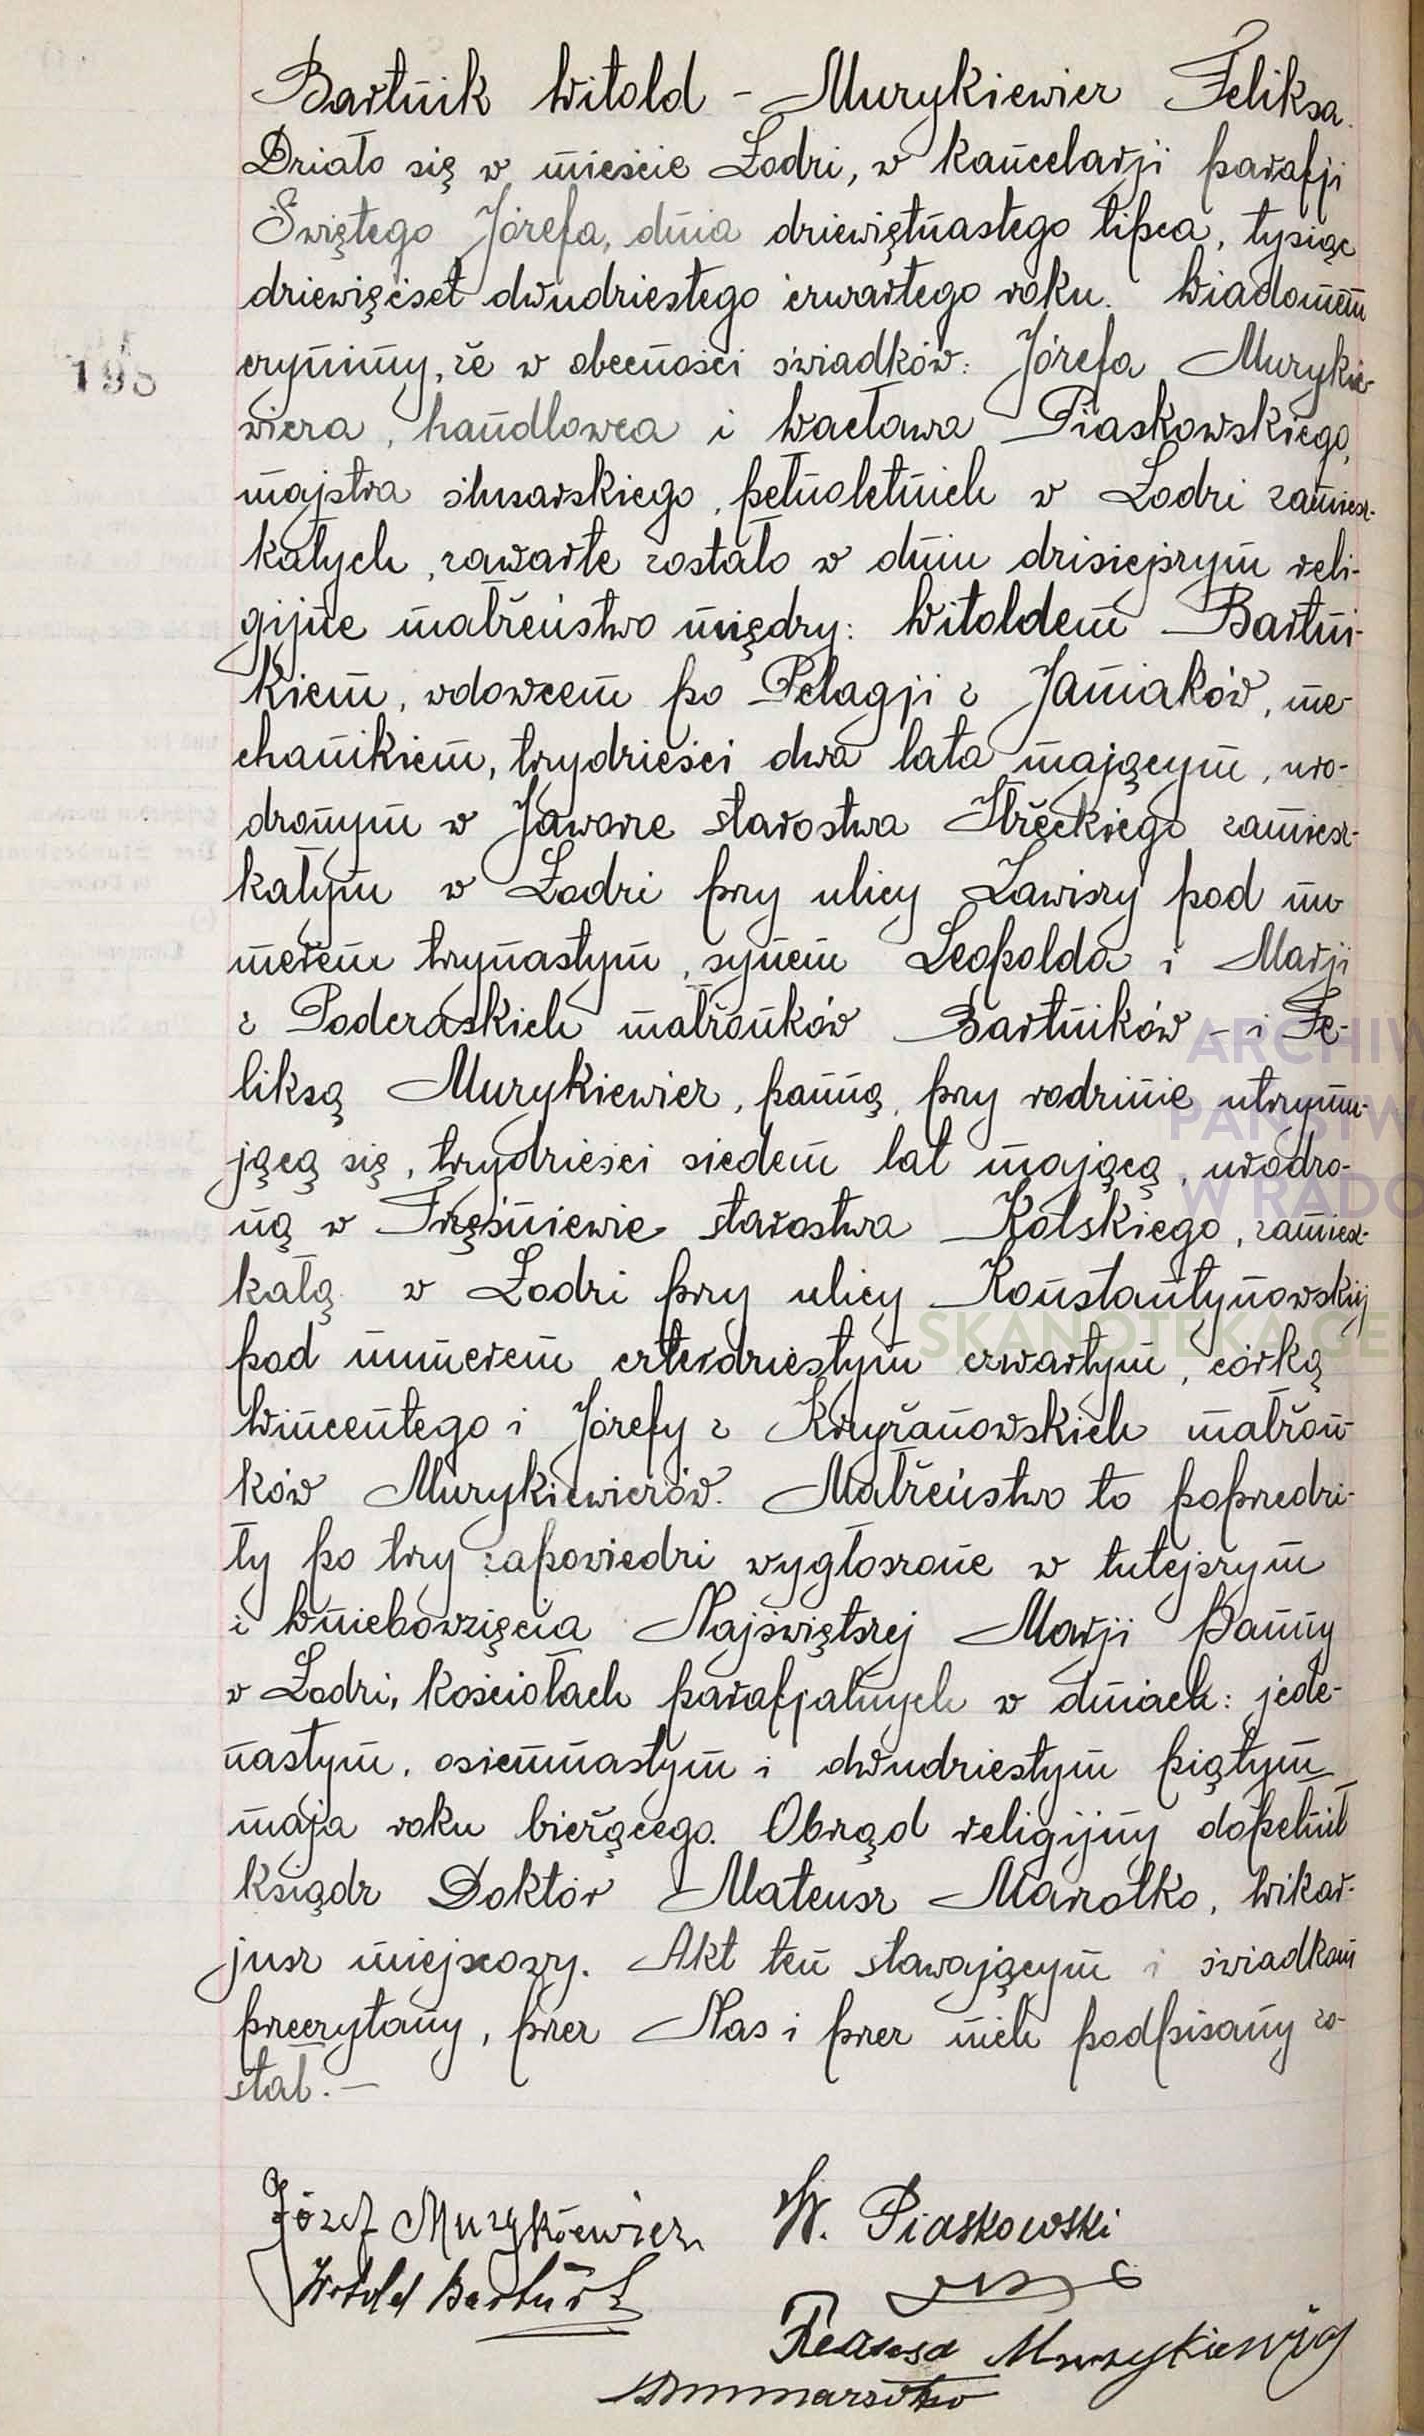 Bartnik Witold - Muzykiewicz Feliksa.
Działo się w mieście Łodzi, w kancelarji parafji
Świętego Józefa, dnia dziewiętnastego lipca, tysiąc
dziewięćset dwudziestego czwartego roku. Wiadomem
czynimy, że w obecności świadków: Józefa Muzykie-
198
wicza, handlowca i Wacława Piaskowskiego,
majstra ślusarskiego, pełnoletnich w Łodzi zamiesz-
kałych, zawarte zostało w dniu dzisiejszym reli-
gijne małżeństwo między: Witoldem Bartni-
kiem, wdowcem po Pelagji z Janiaków, me-
chanikiem, trzydzieści dwa lata mającym, uro-
dzonym w Jaworze starostwa Iłżeckiego zamiesz-
kałym w Łodzi przy ulicy Zawiszy pod nu
merem trzynastym, synem Leopolda i Marji
z Poderaskich małżonków Bartników - i Fe-
liksą Muzykiewicz, panną, przy rodzinie utrzymu-
jącą się, trzydzieści siedem lat mającą, urodzo-
ną w Trześniewie starostwa Kolskiego, zamiesz-
kałą w Łodzi przy ulicy Konstantynowskiej
pod numerem czterdziestym czwartym, córką
Wincentego i Józefy z Krzyżanowskich małżon-
ków Muzykiewiczów. Małżeństwo to poprzedzi-
ły po trzy zapowiedzi wygłoszone w tutejszym
i Wniebowzięcia Najświętszej Marji Panny
w Łodzi, kościołach parafjalnych w dniach: jede-
nastym, osiemnastym i dwudziestym piątym
maja roku bieżącego. Obrząd religijny dopełnił
ksiądz Doktór Mateusz Mawrotko, wikar-
jusz miejscowy. Akt ten stawającym i świadkom
przeczytany, przez Nas i przez nich podpisany zo-
stał. -
Józef Muzykiewicz W. Piaskowski
Witold Bartnik
Feliksa Muzykiewicz
ARCHIW
PAŃSTW
W RADO
SKANOTEKA GEN